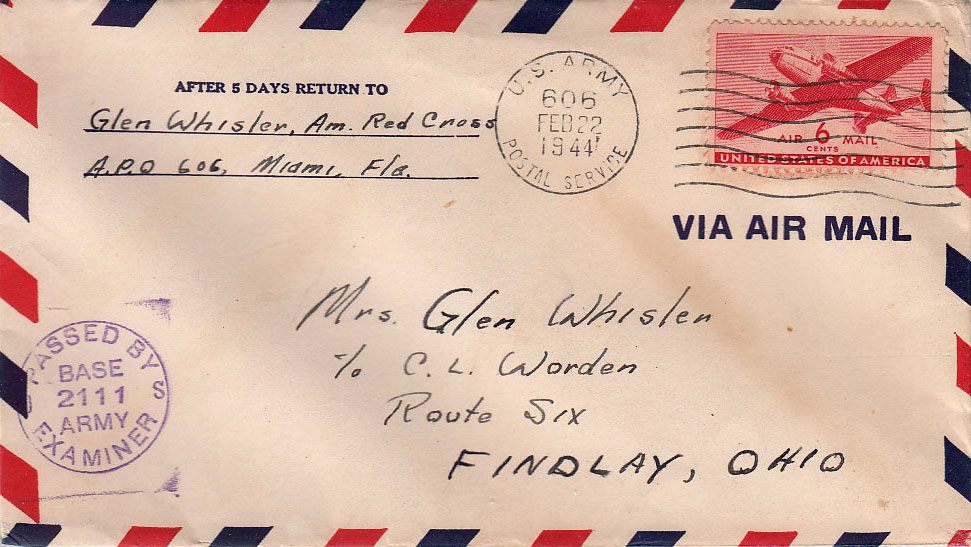 AFTER 5 DAYS RETURN TO
Glen Whisler, Am. Red Cross
A.P.O 606, Miami, Fla.
U.S. ARMY
606
FEB 22
1944
POSTAL SERVICE
AIR 6 MAIL
CENTS
UNITED STATES OF AMERICA
VIA AIR MAIL
Mrs. Glen Whisler
℅ C. L. Worden
Route Six
FINDLAY, OHIO
PASSED BY
BASE
2111
ARMY
EXAMINER
S